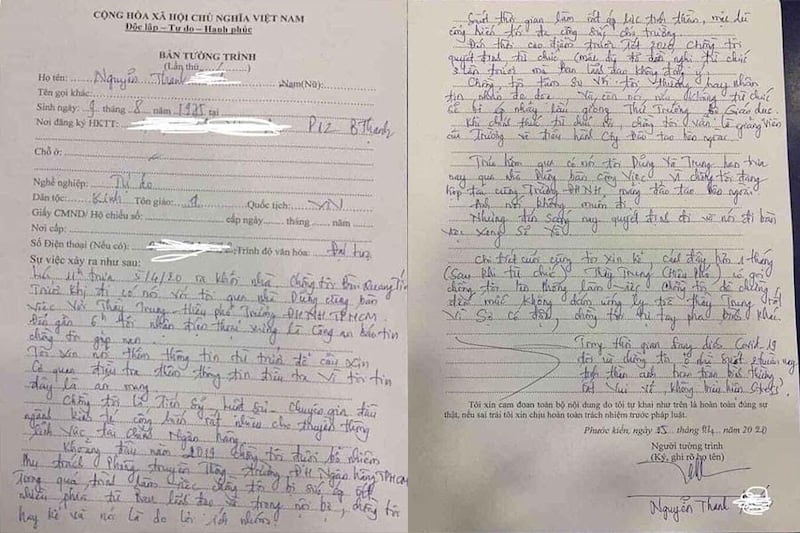 CỘNG HÒA XÃ HỘI CHỦ NGHĨA VIỆT NAM
Độc lập – Tự do – Hạnh phúc
BẢN TƯỜNG TRÌNH
(Lần thứ ...............)
Họ tên: Nguyễn Thanh Nam(Nữ):
Tên gọi khác:
Sinh ngày 9 tháng 8 năm 1985 tại
Nơi đăng ký HKTT: P12 B Thạnh
Chỗ ở:
Nghề nghiệp: Tự do
Dân tộc: Kinh Tôn giáo: Quốc tịch: VN
Giấy CMND/ Hộ chiếu số: cấp ngày tháng năm
Nơi cấp:
Số Điện thoại (Nếu có): ;Trình độ văn hóa: Đại học
Sự việc xảy ra như sau:
trưa 5/4/20 ra khỏi nhà, chồng tôi Bùi Quang Tín
Trước khi đi có nói với tôi qua nhà Dũng cùng bàn
việc với Thầy Trung – Hiệu phó trường ĐHNH TPHCM
Đến gần 6h tôi nhận điện thoại xưng là Công an báo tin
chồng tôi gặp nạn.
Tôi xin nói thêm thông tin từ trước để cầu xin
Cơ quan điều tra thêm thông tin điều tra vì tôi tin
đây là án mạng
Chồng tôi là Tiến Sĩ, luật sư – chuyên gia đầu
ngành kinh tế cống hiến rất nhiều cho truyền thông
lĩnh vực tài chính Ngân hàng.
Khoảng đầu năm 2019 chồng tôi được bổ nhiệm
Phụ trách Phòng truyền thông trường ĐH Ngân hàng TPHCM
Trong quá trình làm việc chồng tôi bị sức ép
nhiều phía từ Ban lãnh đạo, và trong nội bộ, chồng tôi
hay kể và nói là do lợi ích nhóm.
Suốt thời gian làm rất áp lực tinh thần, mặc dù
cống hiến tối đa công sức cho trường
Đến thời cao điểm trước Tết 2020 chồng tôi
quyết định từ chức (mặc dù đã đề nghị từ chức
3 lần trước mà Ban lãnh đạo không đồng ý
Chồng tôi tâm sự với tôi thường hay nhận
tin nhắn đe dọa. Và còn nói nếu không từ chức
sẽ bị nhảy lầu giống Thứ Trưởng Bộ Giáo dục.
Khi chức từ chức rồi, chồng tôi vẫn là giảng viên
của Trường và điều hành Cty Đào tạo bên ngoài.
Trưa hôm qua có nói tôi Dũng và Trung hẹn trưa
nay qua nhà Dũng bàn công việc vì chồng tôi đang
hợp tác cùng Trường ĐHNH, mảng đào tạo bên ngoài
Anh nói không muốn đi
Nhưng đến sáng nay quyết định đi và nói đi bàn
việc xong sẽ về.
Chi tiết cuối cùng tôi xin kể, cách đây hơn 1 tháng
(Sau khi từ chức) Thầy Trung (Hiệu phó) có gọi
chồng tôi lên phòng làm việc. Chồng tôi đề phòng
đến mức không dám uống ly trà thầy Trung rót
Vì sợ có độc, chồng tôi tự tay pha bình khác.
Trong thời gian dịch Covid_19
tôi và chồng tôi ở nhà suốt 2 tuần nay
tinh thần anh hoàn toàn bình thường
rất vui vẻ, không biểu hiện Stress.
Tôi xin cam đoan toàn bộ nội dung do tôi tự khai như trên là hoàn toàn đúng sự
thật, nếu sai trái tôi xin chịu hoàn toàn trách nhiệm trước pháp luật.
Phước kiển, ngày tháng 04 năm 2020
Người tường trình
(Ký, ghi rõ họ tên)
Nguyễn Thanh